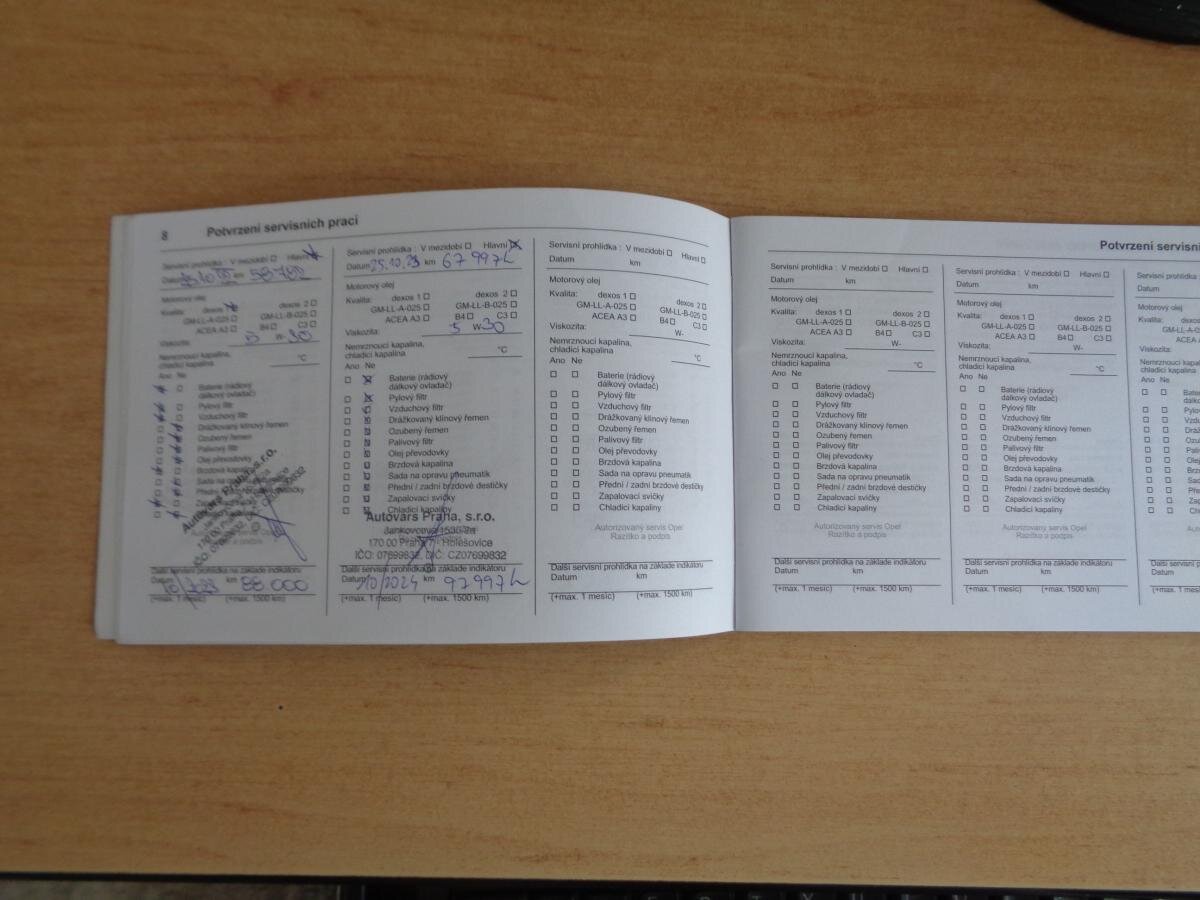 8 Potvrzení servisních prací
Servisní prohlídka : V mezidobí Hlavní
Datum km 58780
Motorový olej
Kvalita: dexos 1 dexos 2
GM-LL-A-025 GM-LL-B-025
ACEA A3 B4 C3
Viskozita: 5 W- 30
Nemrznoucí kapalina,
chladicí kapalina °C
Ano Ne
Baterie (rádiový
dálkový ovladač)
Pylový filtr
Vzduchový filtr
Drážkovaný klínový řemen
Ozubený řemen
Palivový filtr
Olej převodovky
Brzdová kapalina
Sada na opravu
Přední / zadní brzdové destičky
Autovars Praha, s.r.o.
Další servisní prohlídka na základe indikátoru
Datum 10/2023 km 88.000
(+max. 1 mesíc) (+max. 1500 km)
Servisní prohlídka : V mezidobí Hlavní
Datum 25.10.23 km 67 997
Motorový olej
Kvalita: dexos 1 dexos 2
GM-LL-A-025 GM-LL-B-025
ACEA A3 B4 C3
Viskozita: 5 W- 30
Nemrznoucí kapalina,
chladicí kapalina °C
Ano Ne
Baterie (rádiový
dálkový ovladač)
Pylový filtr
Vzduchový filtr
Drážkovaný klínový řemen
Ozubený řemen
Palivový filtr
Olej převodovky
Brzdová kapalina
Sada na opravu pneumatik
Přední / zadní brzdové destičky
Zapalovací svíčky
Chladicí kapaliny
Autovars Praha, s.r.o.
Jankovcova
170 00 Praha 7 - Holešovice
IČO: 07699832, DIČ: CZ07699832
Další servisní prohlídka na základe indikátoru
Datum 10/2024 km 97 997
(+max. 1 mesíc) (+max. 1500 km)
Servisní prohlídka : V mezidobí Hlavní
Datum km
Motorový olej
Kvalita: dexos 1 dexos 2
GM-LL-A-025 GM-LL-B-025
ACEA A3 B4 C3
Viskozita: W-
Nemrznoucí kapalina,
chladicí kapalina °C
Ano Ne
Baterie (rádiový
dálkový ovladač)
Pylový filtr
Vzduchový filtr
Drážkovaný klínový řemen
Ozubený řemen
Palivový filtr
Olej převodovky
Brzdová kapalina
Sada na opravu pneumatik
Přední / zadní brzdové destičky
Zapalovací svíčky
Chladicí kapaliny
Autorizovaný servis Opel
Razítko a podpis
Další servisní prohlídka na základe indikátoru
Datum km
(+max. 1 mesíc) (+max. 1500 km)
Potvrzení servisní
Servisní prohlídka : V mezidobí Hlavní
Datum km
Motorový olej
Kvalita: dexos 1 dexos 2
GM-LL-A-025 GM-LL-B-025
ACEA A3 B4 C3
Viskozita: W-
Nemrznoucí kapalina,
chladicí kapalina °C
Ano Ne
Baterie (rádiový
dálkový ovladač)
Pylový filtr
Vzduchový filtr
Drážkovaný klínový řemen
Ozubený řemen
Palivový filtr
Olej převodovky
Brzdová kapalina
Sada na opravu pneumatik
Přední / zadní brzdové destičky
Zapalovací svíčky
Chladicí kapaliny
Autorizovaný servis Opel
Razítko a podpis
Další servisní prohlídka na základe indikátoru
Datum km
(+max. 1 mesíc) (+max. 1500 km)
Servisní prohlídka : V mezidobí Hlavní
Datum km
Motorový olej
Kvalita: dexos 1 dexos 2
GM-LL-A-025 GM-LL-B-025
ACEA A3 B4 C3
Viskozita: W-
Nemrznoucí kapalina,
chladicí kapalina °C
Ano Ne
Baterie (rádiový
dálkový ovladač)
Pylový filtr
Vzduchový filtr
Drážkovaný klínový řemen
Ozubený řemen
Palivový filtr
Olej převodovky
Brzdová kapalina
Sada na opravu pneumatik
Přední / zadní brzdové destičky
Zapalovací svíčky
Chladicí kapaliny
Autorizovaný servis Opel
Razítko a podpis
Další servisní prohlídka na základe indikátoru
Datum km
(+max. 1 mesíc) (+max. 1500 km)
Servisní prohlídka
Datum
Motorový olej
Kvalita: dexos
GM-LL-A
ACEA A
Viskozita:
Nemrznoucí kapalin
chladicí kapalina
Ano Ne
Bater
dálko
Pylo
Vzdu
Dráž
Ozu
Pali
Olej
Brz
Sad
Pře
Zap
Ch
Další servisní p
Datum
(+max. 1 mesí